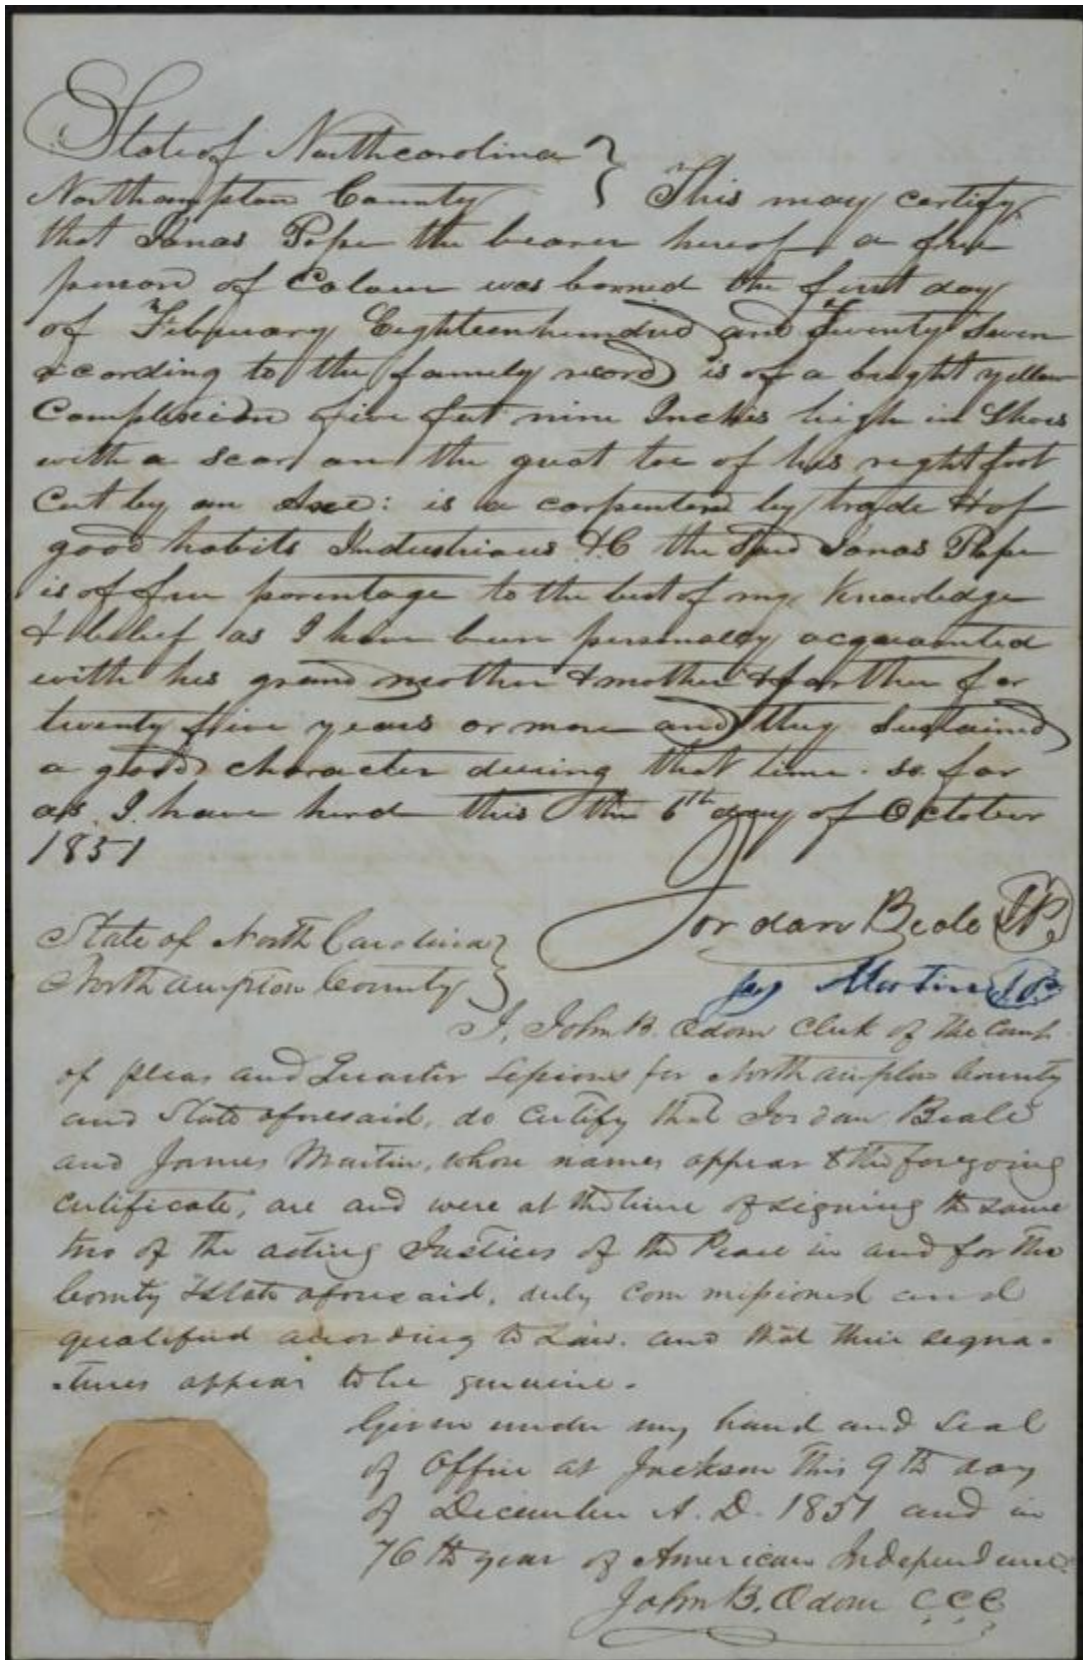 State of Northcarolina }
Northampton County } This may certify
that Jonas Pope the bearer hereof a free
person of Colour was borned the first day
of February Eighteenhundred and Twenty Seven
acording to the family record is of a bright yellow
Complexion five feet nine Inches high in Shoes
with a scar on the great toe of his right foot
Cut by an Axe: is a carpenter by trade & of
good habits Industrious &C the Said Jonas Pope
is of free parentage to the best of my Knowledge
& belief as I have been personally acquainted
with his grand mother & mother & farther for
twenty five years or more and they Sustained
a good character during that time so far
as I have herd this the 6th day of October
1851
Jordan Beale JP.
State of North Carolina }
Northampton County }
Jas Martin JP
I, John B. Odom Clerk of the Court
of pleas and Quarter Sessions for Northampton County
and State aforesaid, do Certify that Jordan Beale
and James Martin, whose names appear to the foregoing
certificate, are and were at the time of signing the same
two of the acting Justices of the Peace in and for the
County & State aforesaid, duly commissioned and
qualified according to Law. and that their signa-
-tures appear to be genuine.
Given under my hand and Seal
of Office at Jackson this 9th day
of December A. D. 1851 and in
76th year of American Independence.
John B. Odom C.C.C